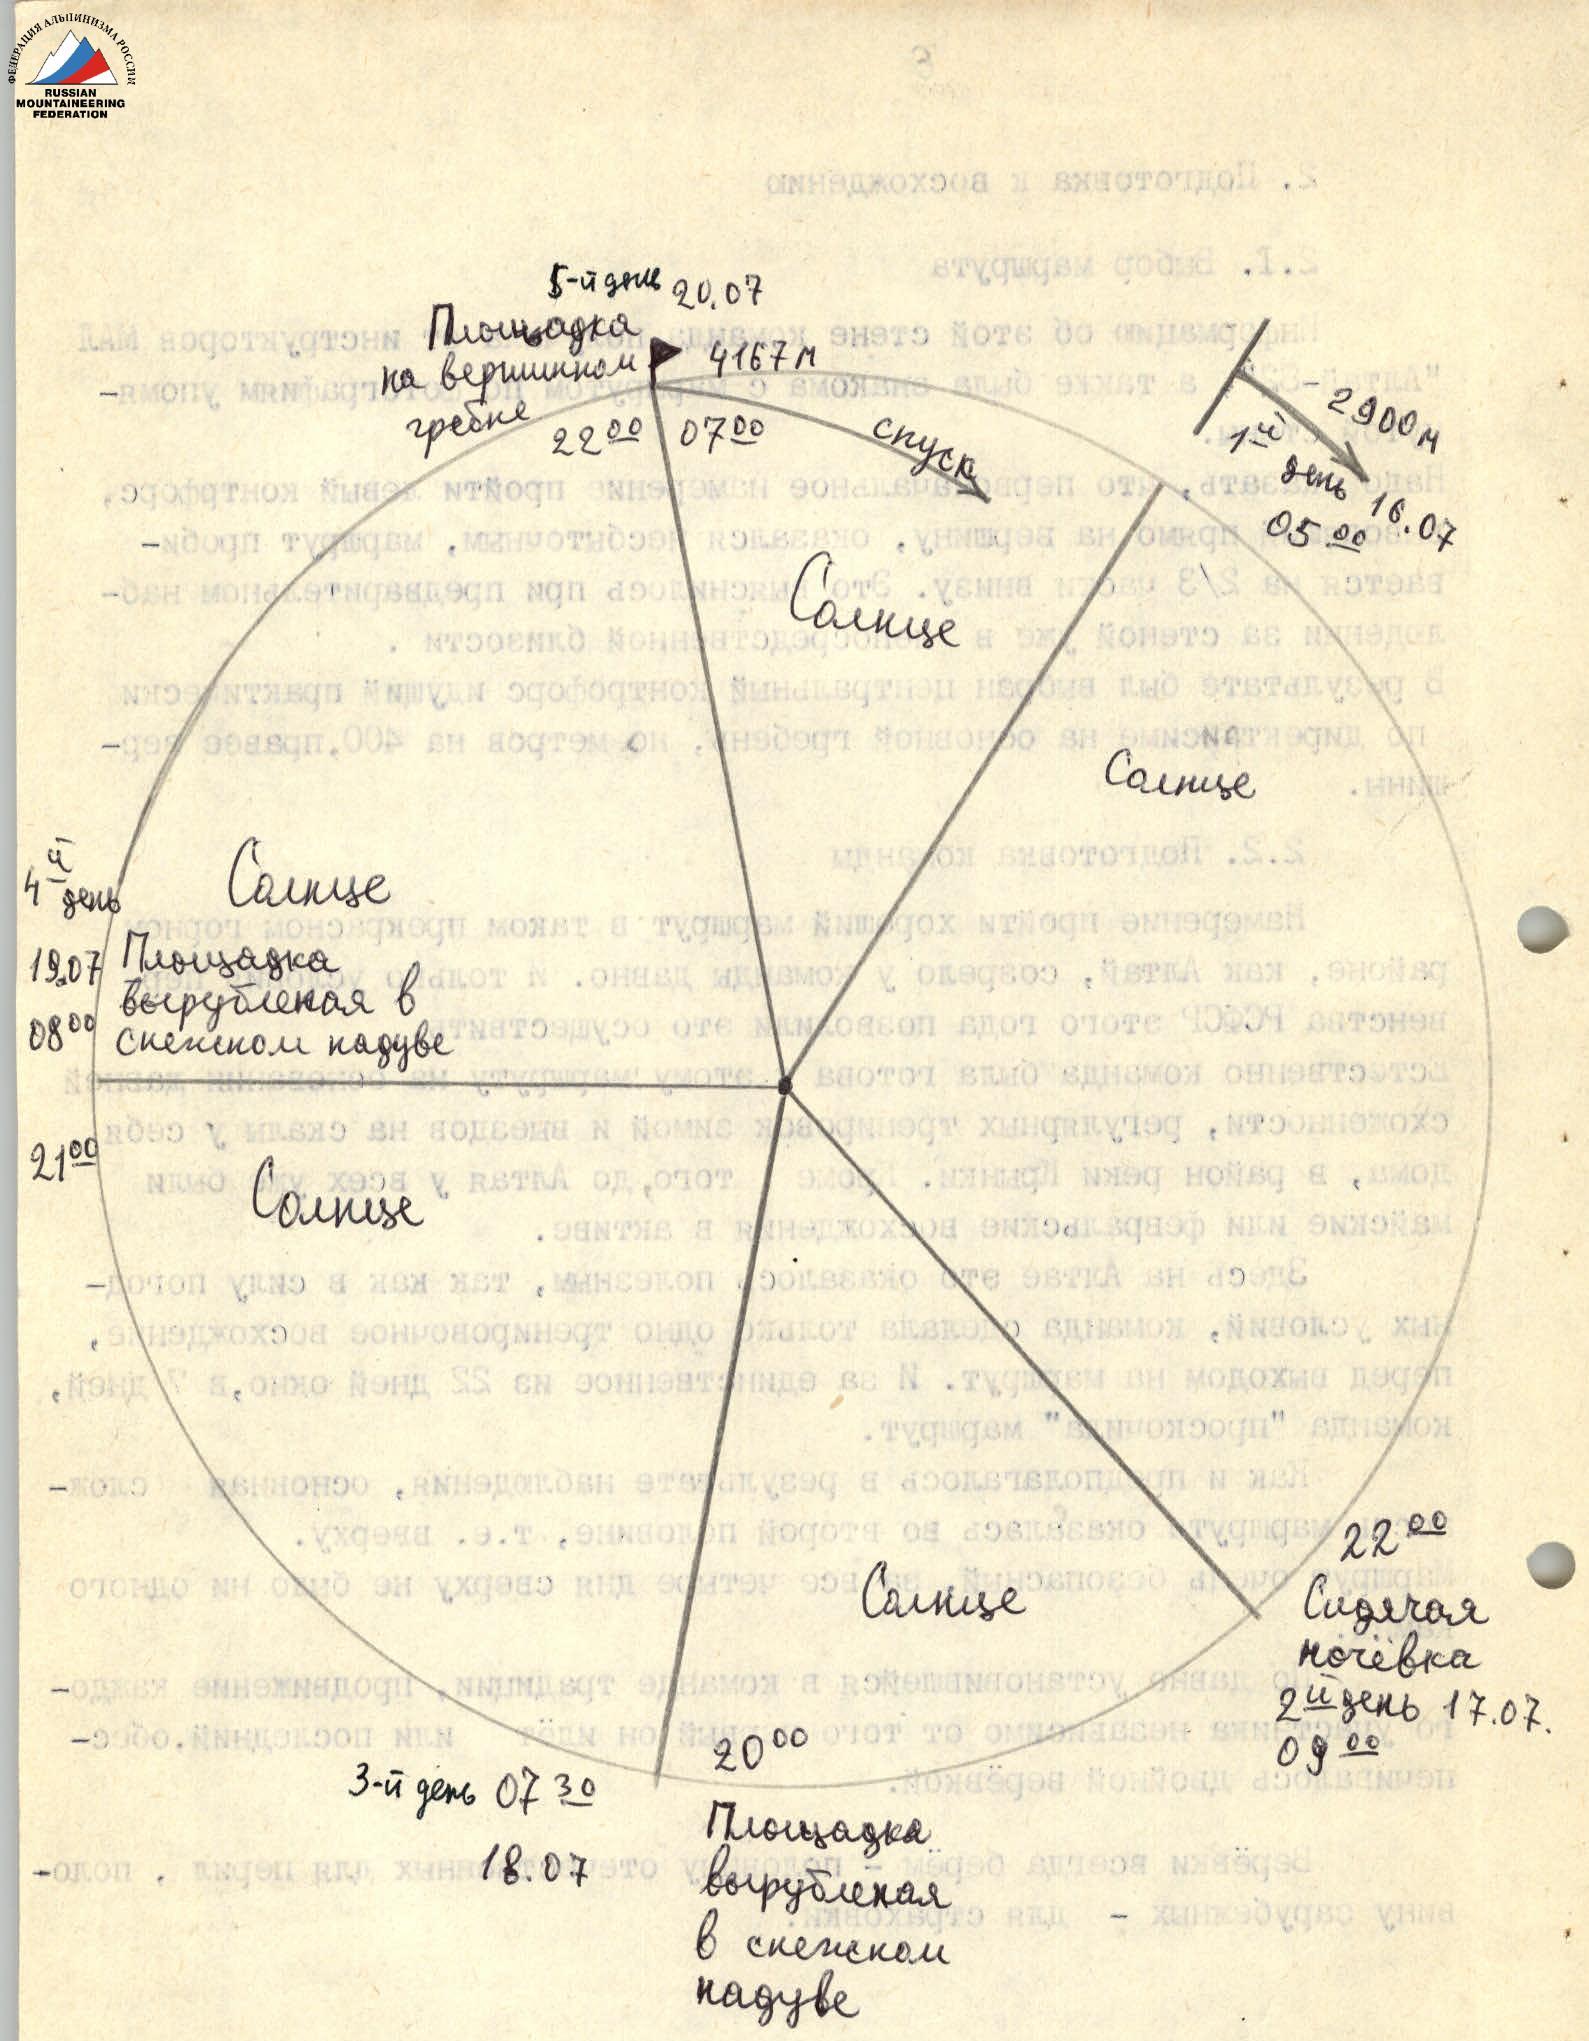 ФЕДЕРАЦИЯ АЛЬПИНИЗМА РОССИИ
RUSSIAN
MOUNTAINEERING
FEDERATION
5-й день 20.07
Площадка
на вершинном
гребне
4167м
22 00
07 00
спуск
2900м
1й
день 16.07
05 00
Солнце
Солнце
4й
день
19.07
08 00
Солнце
Площадка
вырубленая в
снежном надуве
21 00
Солнце
Солнце
22 00
Сидячая
ночёвка
2й день 17.07.
09 00
20 00
3-й день 07 30
18.07
Площадка
вырубленая
в снежном
надуве